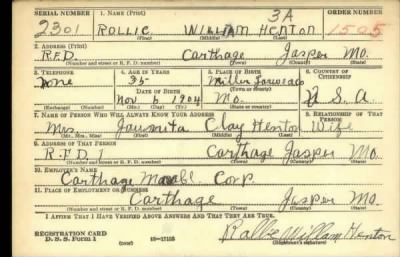 SERIAL NUMBER 1. NAME (Print) 3A ORDER NUMBER
2301 ROLLIE WILLIAM HENTON 1505
(First) (Middle) (Last)
2. ADDRESS (Print)
R.F.D. Carthage Jasper Mo.
(Number and street or R. F. D. number) (Town) (County) (State)
3. TELEPHONE 4. AGE IN YEARS 5. PLACE OF BIRTH 6. COUNTRY OF CITIZENSHIP
None 36 Miller
DATE OF BIRTH
Nov 6 1904 Mo. U S A
(Exchange) (Number) (Mo.) (Day) (Yr.) (State or country)
7. NAME OF PERSON WHO WILL ALWAYS KNOW YOUR ADDRESS RELATIONSHIP OF THAT PERSON
Mrs. Clay Henton Wife
(Mr., Mrs., Miss) (First) (Middle) (Last)
8. ADDRESS OF THAT PERSON
R.F.D 1 Carthage Jasper Mo
(Number and street or R. F. D. number) (Town) (County) (State)
10. EMPLOYER'S NAME
Carthage Marbl. Corp
11. PLACE OF EMPLOYMENT OR BUSINESS
Carthage Jasper Mo.
(Number and street or R. F. D. number) (Town) (County) (State)
I AFFIRM THAT I HAVE VERIFIED ABOVE ANSWERS AND THAT THEY ARE TRUE.
REGISTRATION CARD
D. S. S. Form 1 (over) 16—17105 Rollie William Henton
(Registrant's signature)